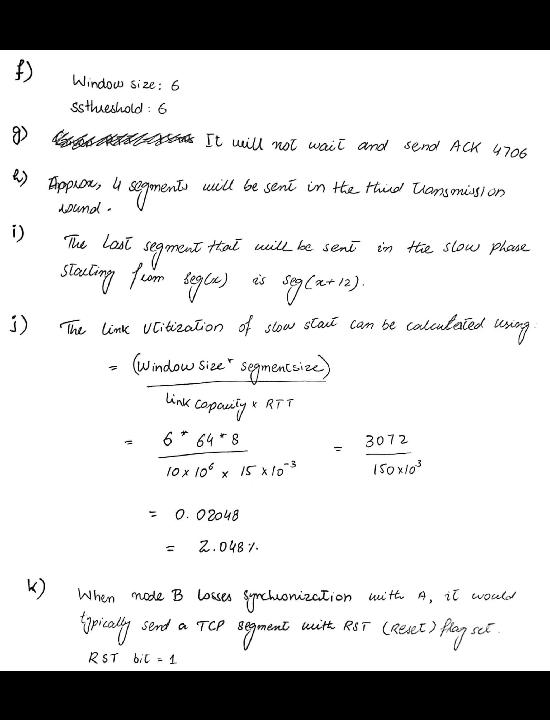 f)
Window size: 6
ssthreshold: 6
g) It will not wait and send ACK 4706
h) Approx, 4 segments will be sent in the third transmission
round.
i) The last segment that will be sent in the slow phase
starting from seg(x) is seg(x+12).
j) The link utitization of slow start can be calculated using.
= (window size * segmentsize)
link capacity × RTT
= 6 * 64 * 8 = 3072
10 × 10⁶ × 15 × 10⁻³ 150×10³
= 0.02048
= 2.048%.
k) When node B losses synchronization with A, it would
typically send a TCP segment with RST (Reset) flag set.
RST bit = 1